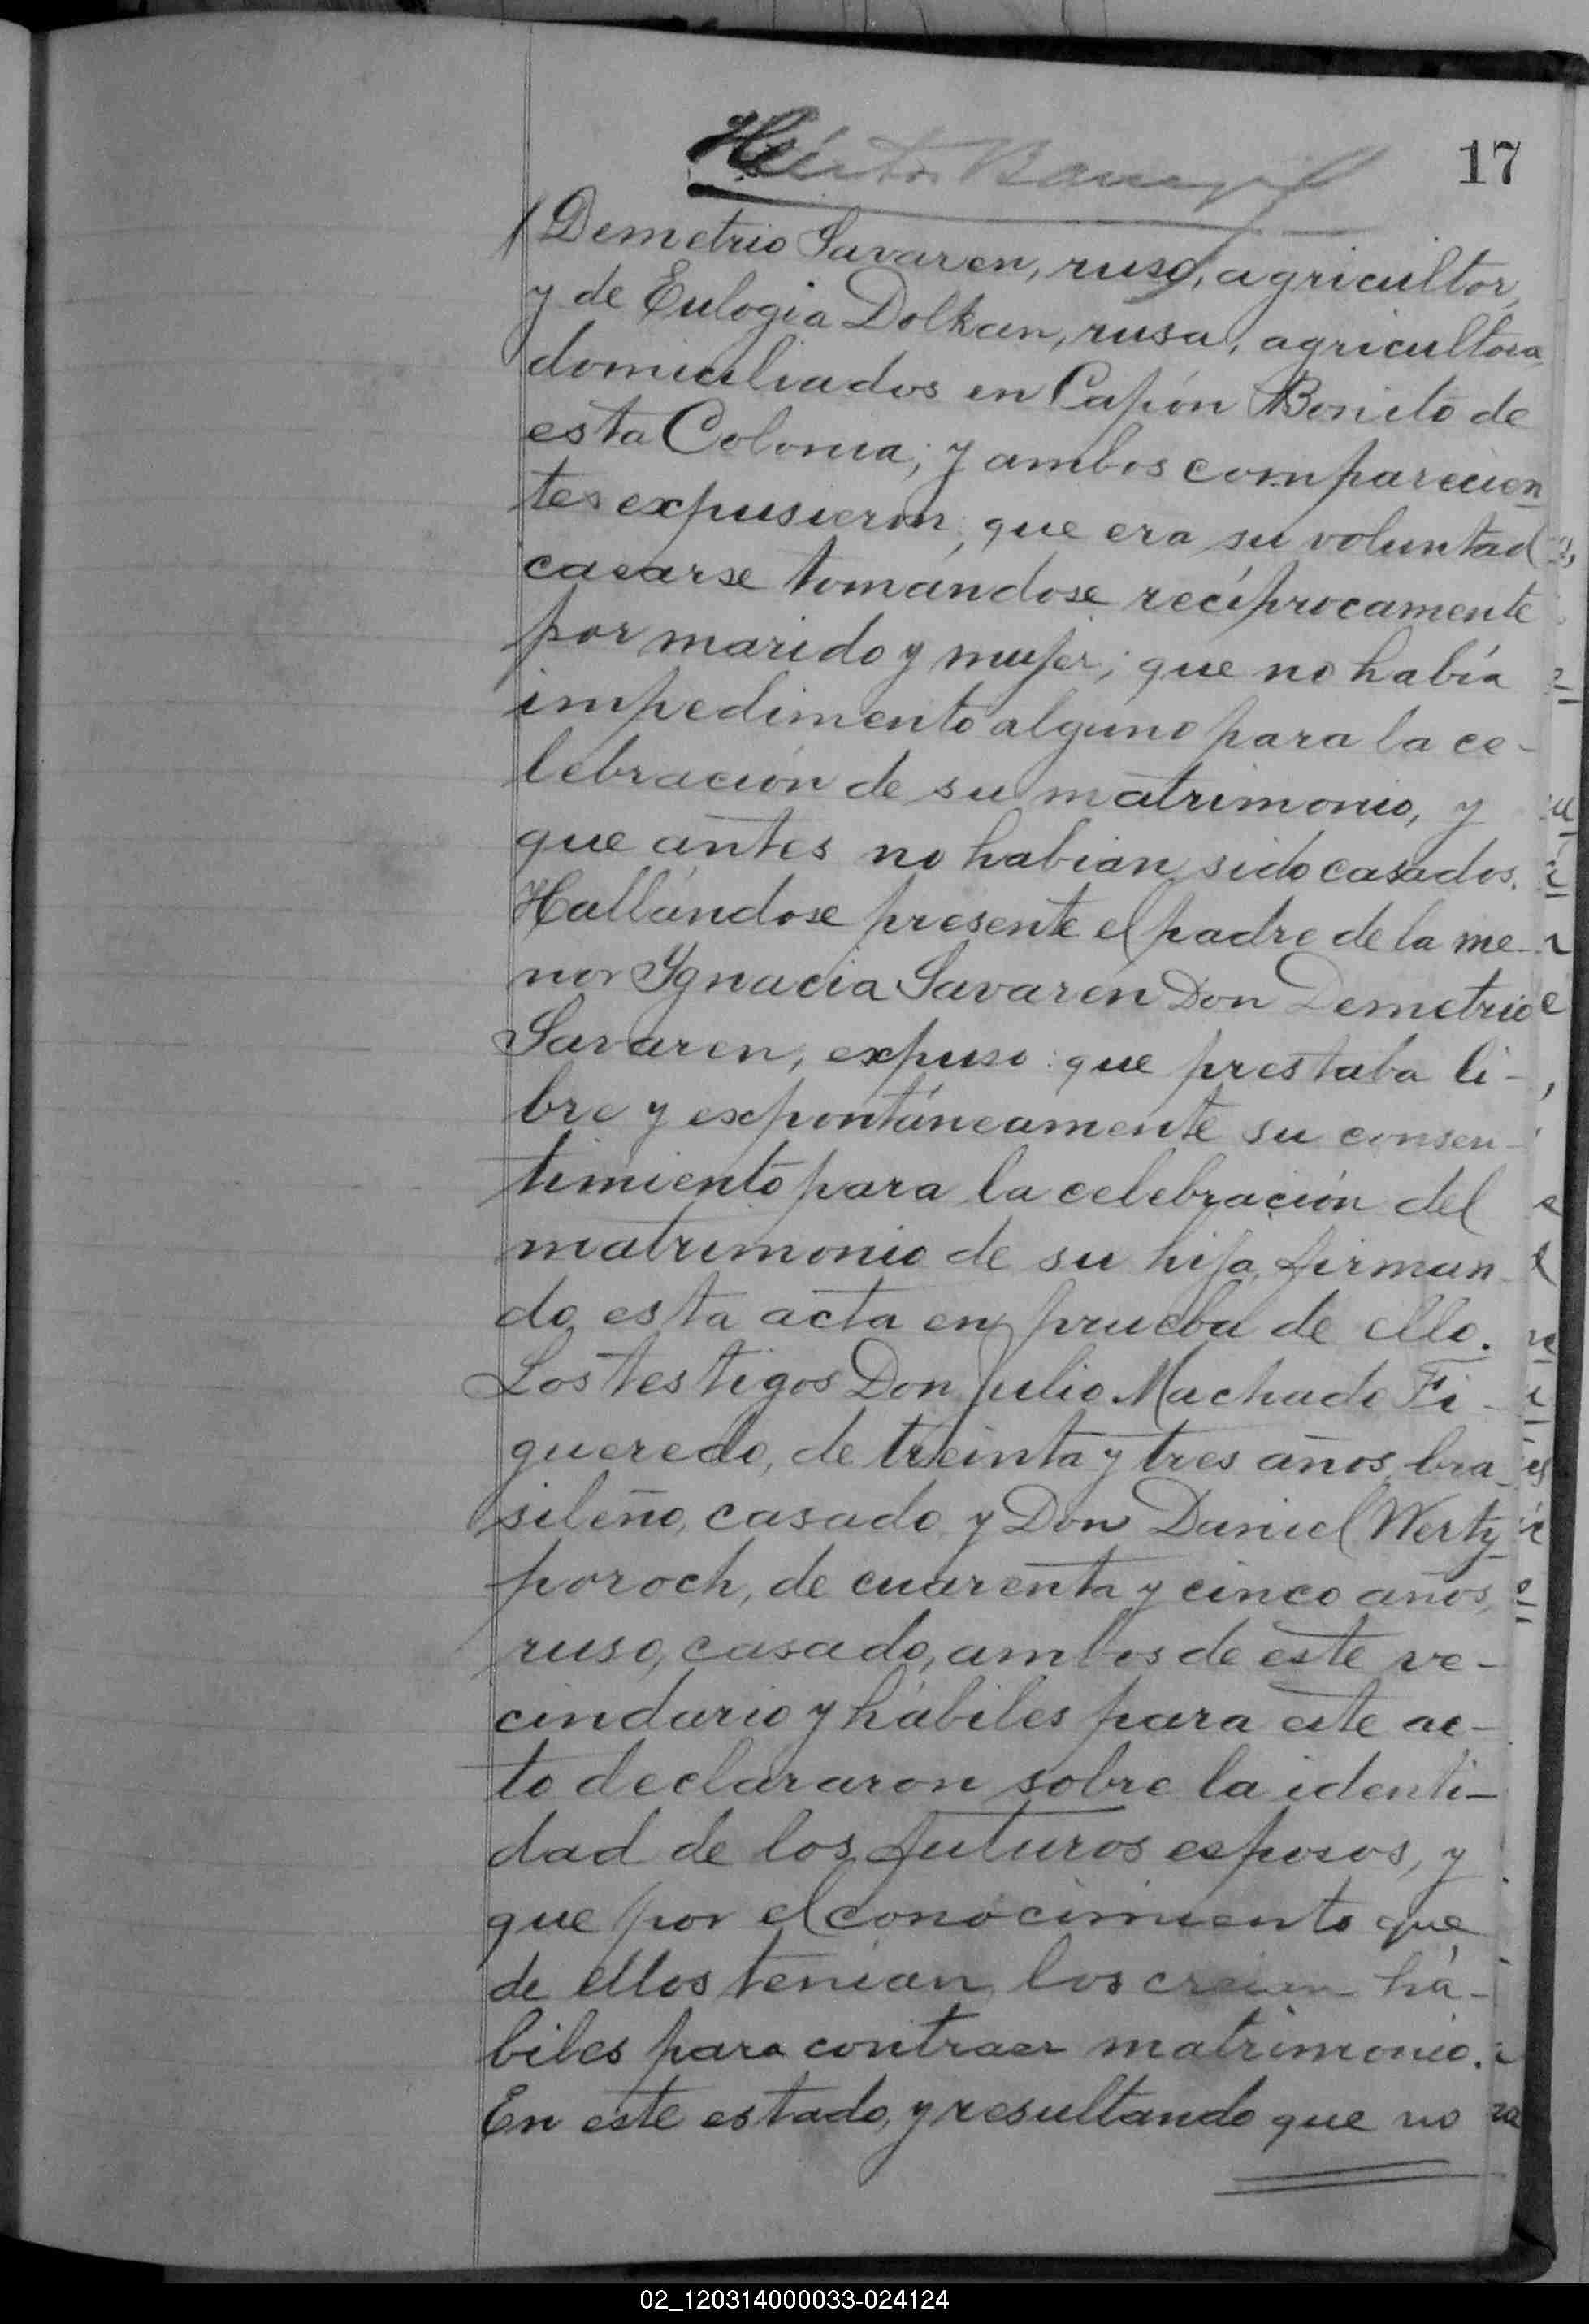 17
Demetrio Savaren, ruso, agricultor,
y de Eulogia Dolkan, rusa, agricultora,
domiciliados en Capón Bonito de
esta Colonia; y ambos comparecien
tes expusieron; que era su voluntad
casarse tomándose recíprocamente
por marido y mujer; que no había
impedimento alguno para la ce-
lebración de su matrimonio, y
que antes no habian sido casados.
Hallándose presente el padre de la me-
nor Ygnacia Savarén Don Demetrio
Savaren, expuso: que prestaba li-
bre y expontáneamente su consen-
timiento para la celebración del
matrimonio de su hija, firman-
do esta acta en prueba de ello.
Los testigos Don Julio Machado Fi-
gueredo, de treinta y tres años, bra-
sileño, casado, y Don Daniel Werty-
poroch, de cuarenta y cinco años,
ruso, casado, ambos de este ve-
cindario y hábiles para este ac-
to declararon sobre la identi-
dad de los futuros esposos, y
que por el conocimiento que
de ellos tenían los creian há-
biles para contraer matrimonio.
En este estado, y resultando que no
02_120314000033-024124